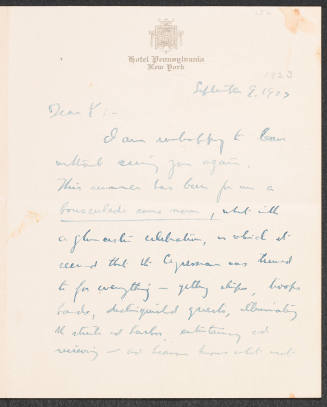 Hotel Pennsylvania
New York
1923
September 8, 19
Dear :-
I am unhappy to leave
without seeing you again.
This summer has been for me a
, what with
a Gloucester celebration, in which it
seemed that the Congressman was turned
to for everything — getting ships, troops
bands, distinguished guests, illuminating
the streets and harbor, entertaining and
reviewing — and heaven knows what not